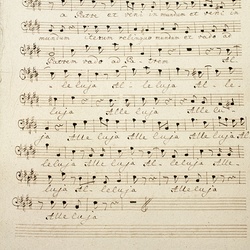 a Patre et veni in mundum et veni in
mundum iterum relinquo mundum et vado ad
Patrem vado ad Pa- trem Al-
leluja Al- le luja Al- le-
luja Alle luja Alle luja Al-
leluja Alleluja Al- leluja Alle-
luja Al- leluja Alleluja
Alleluja